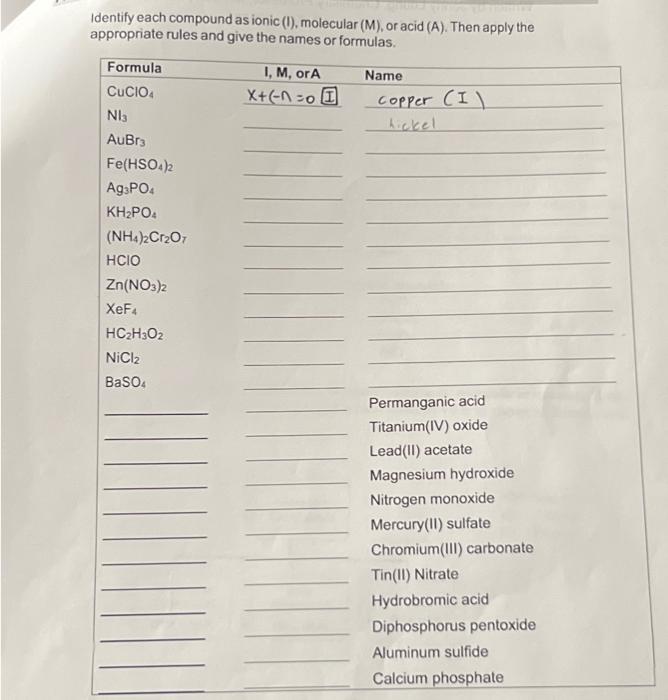 Identify each compound as ionic (I), molecular (M), or acid (A). Then apply the
appropriate rules and give the names or formulas.
Formula I, M, or A Name
CuClO₄ X+(-1)=0 I copper (I)
NI₃ nickel
AuBr₃
Fe(HSO₄)₂
Ag₃PO₄
KH₂PO₄
(NH₄)₂Cr₂O₇
HClO
Zn(NO₃)₂
XeF₄
HC₂H₃O₂
NiCl₂
BaSO₄
Permanganic acid
Titanium(IV) oxide
Lead(II) acetate
Magnesium hydroxide
Nitrogen monoxide
Mercury(II) sulfate
Chromium(III) carbonate
Tin(II) Nitrate
Hydrobromic acid
Diphosphorus pentoxide
Aluminum sulfide
Calcium phosphate